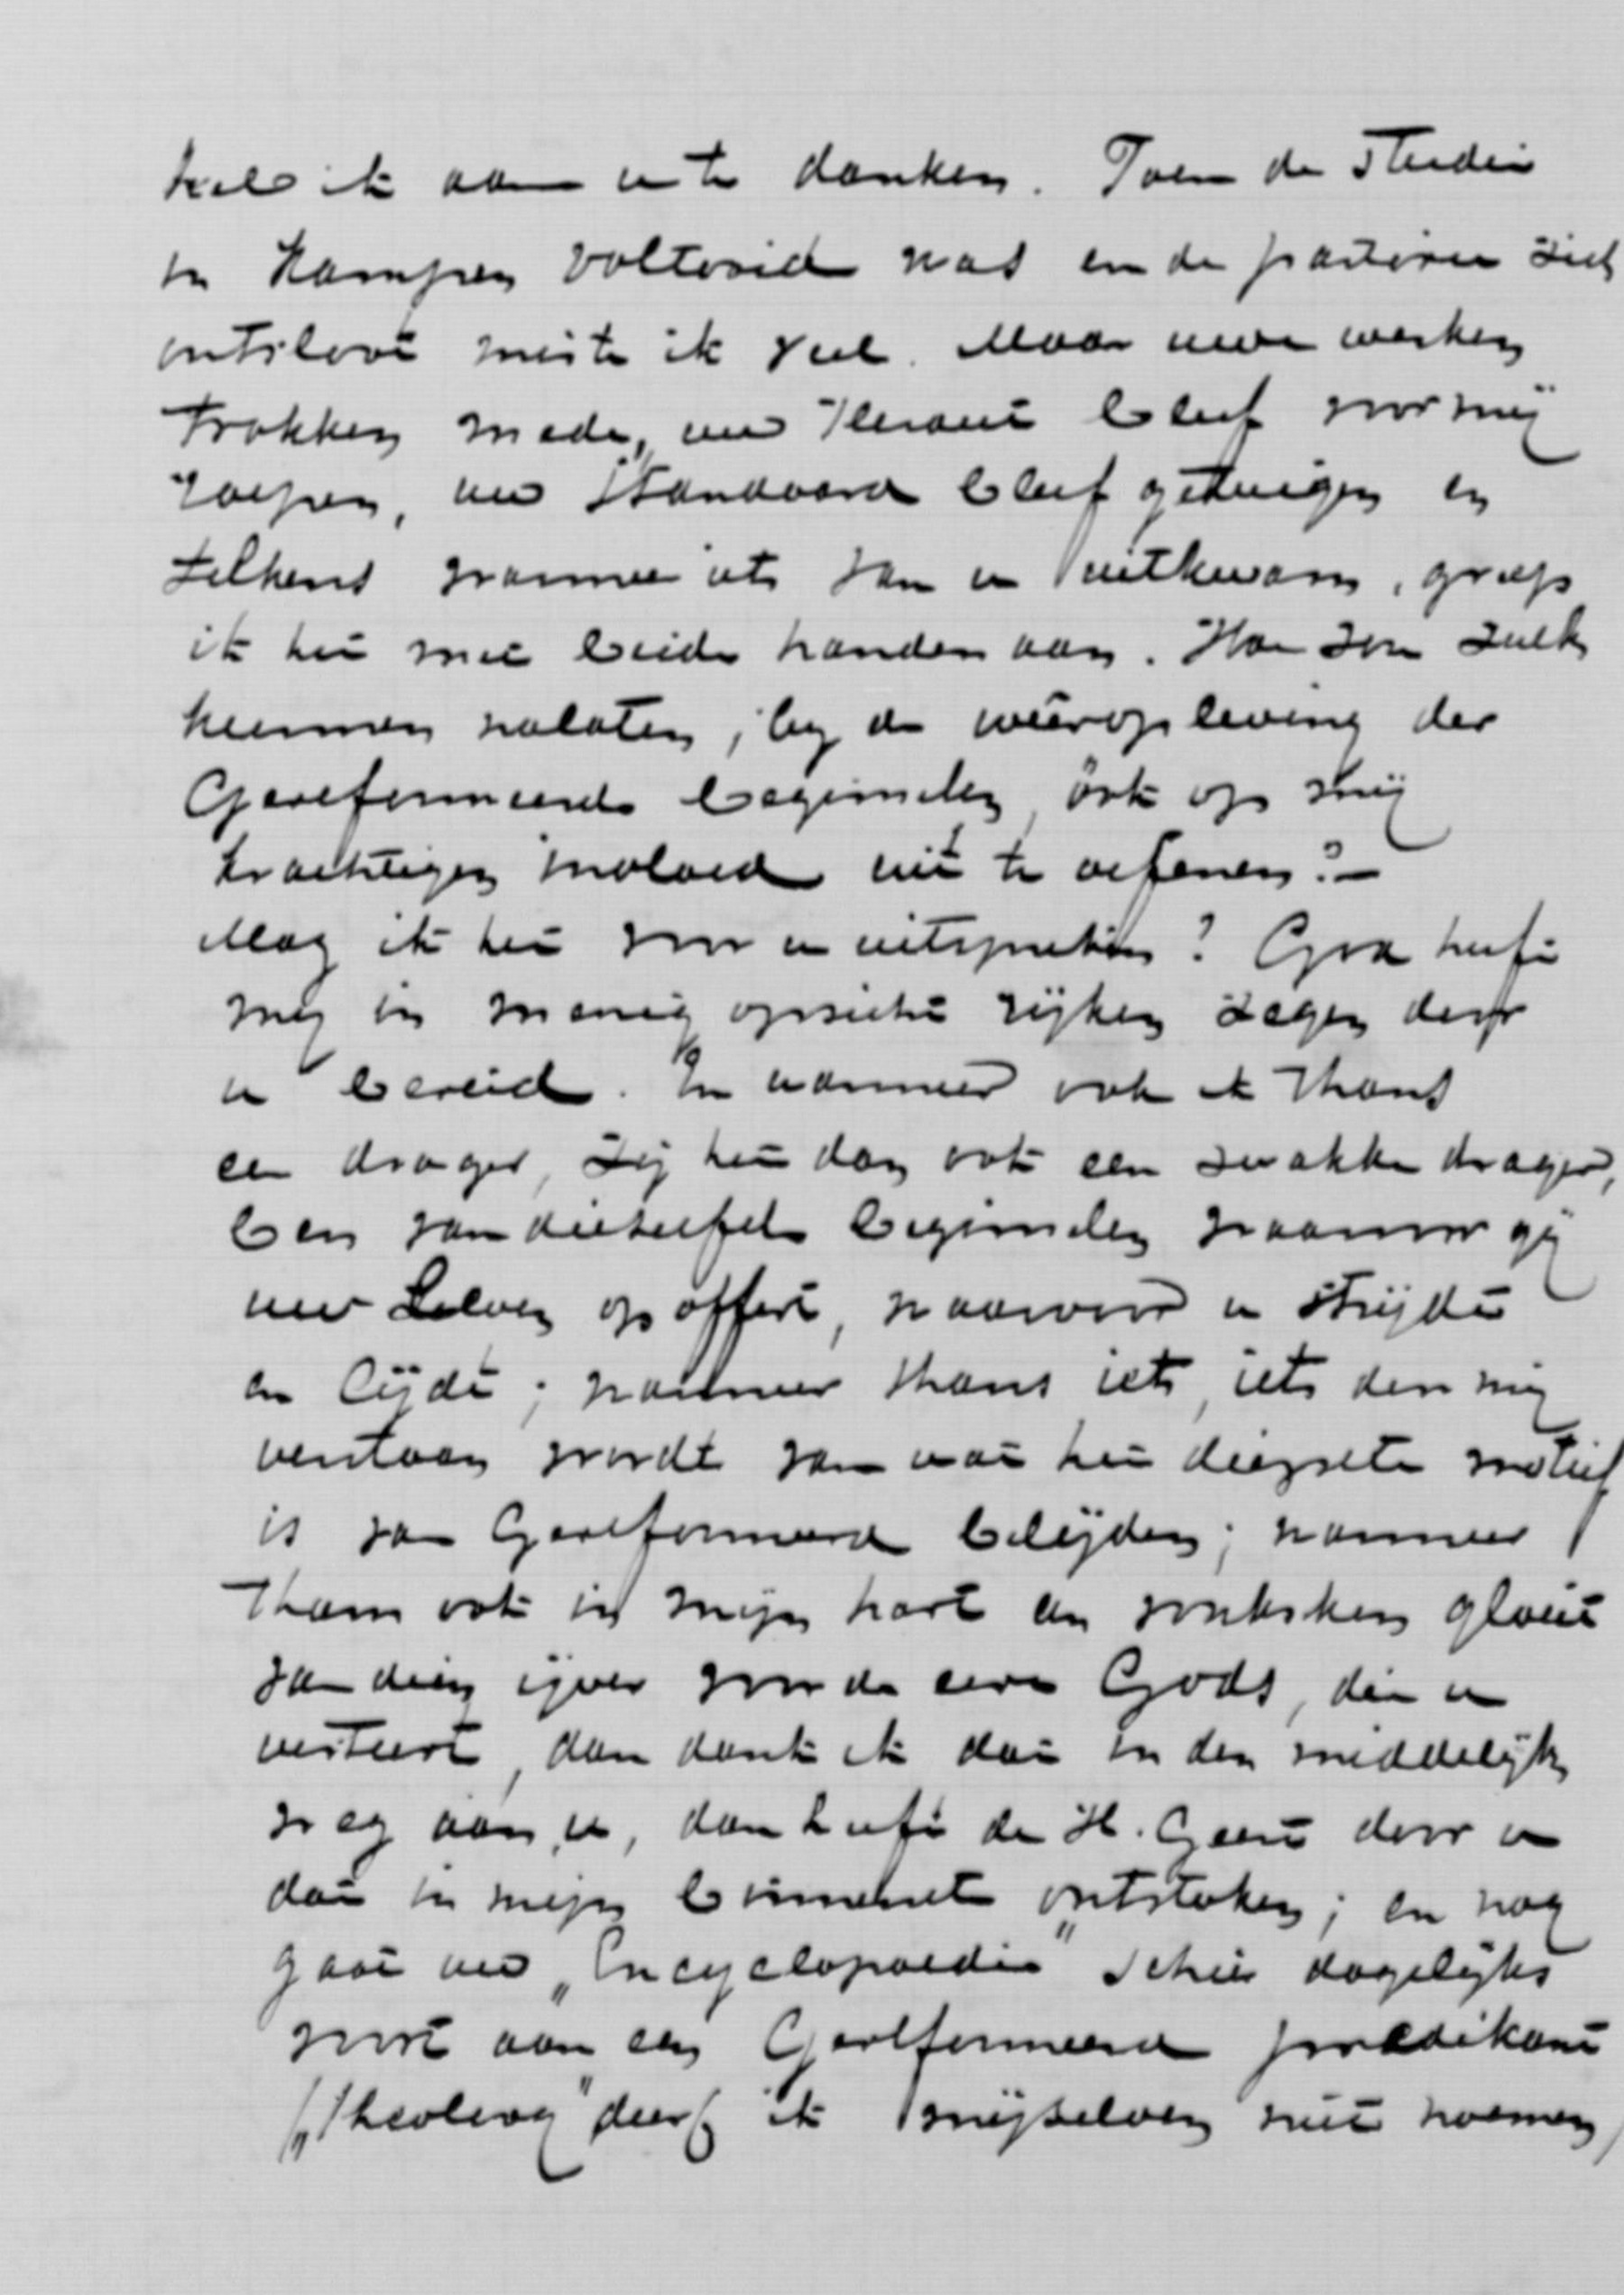 heb ik aan u te danken. Toen de studie
te Kampen voltooid was en de pastorie zich
ontsloot miste ik veel. Maar uwe werken
trokken mede, uw Heraut bleef voor mij
roepen, uw Standaard bleef getuigen en
telkens wanneer iets van u uitkwam, greep
ik het met beide handen aan. Hoe zou zulks
kunnen nalaten, bij de weeropleving der
Gereformeerde beginselen ook op mij
krachtigen invloed uit te oefenen? –
Mag ik het voor u uitspreken? God heeft
mij in menig opzicht rijken zegen door
u bereid. En wanneer ook ik thans
een drager, zij het dan ook een zwakke drager,
ben van dezelfde beginselen waarvoor gij
uw leven opoffert, waarvoor u strijdt
en lijdt; wanneer thans iets, iets door mij
verstaan wordt van wat het diepste motief
is van Gereformeerd belijden; wanneer
thans ook in mijn hart een vonksken gloeit
van dien ijver voor de eere Gods, die u
verteert, dan dank ik dat in den middelijken
weg aan u, dan heeft de H. Geest door u
dat in mijn binnenste ontstoken; en nog
gaat uw „Encyclopaedie" schier dagelijks
voort aan een Gereformeerd predikant
(„Theoloog" durf ik mijzelven niet noemen)